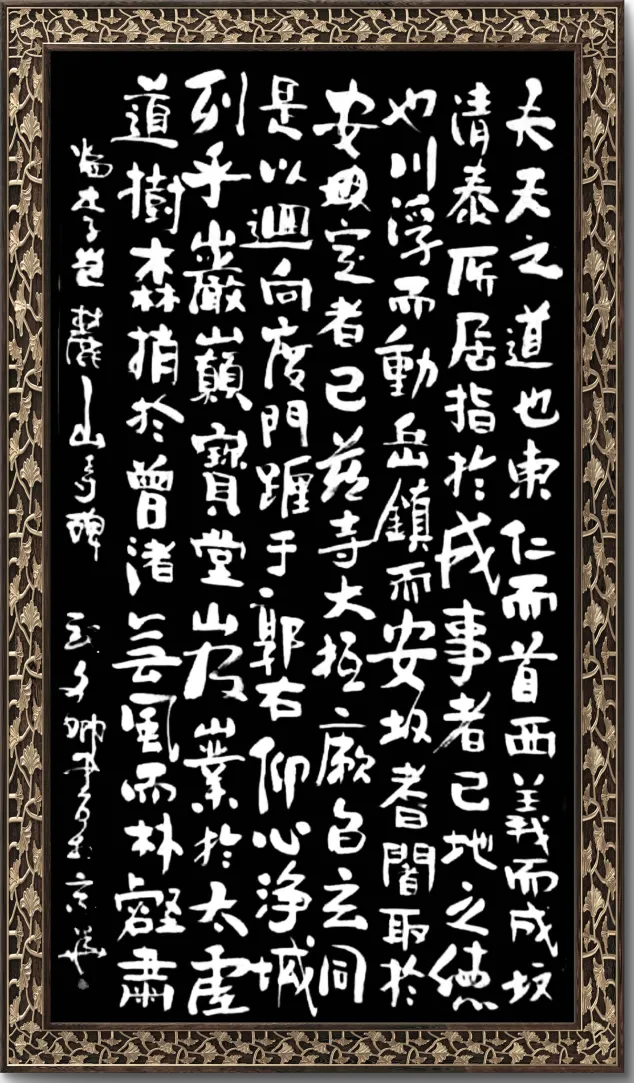 夫天之道也東仁而首西義而成故
清泰所居指於成事者已地之德
也川浮而動岳鎮而安故耆闍取於
安定者已茲寺大抵厥旨玄同
是以迴向度門躔于郭右仰心淨域
列乎巖巔寶堂岌嶪於太虛
道樹森梢於曾渚無風而林壑肅
李邕麓山寺碑 書於京華